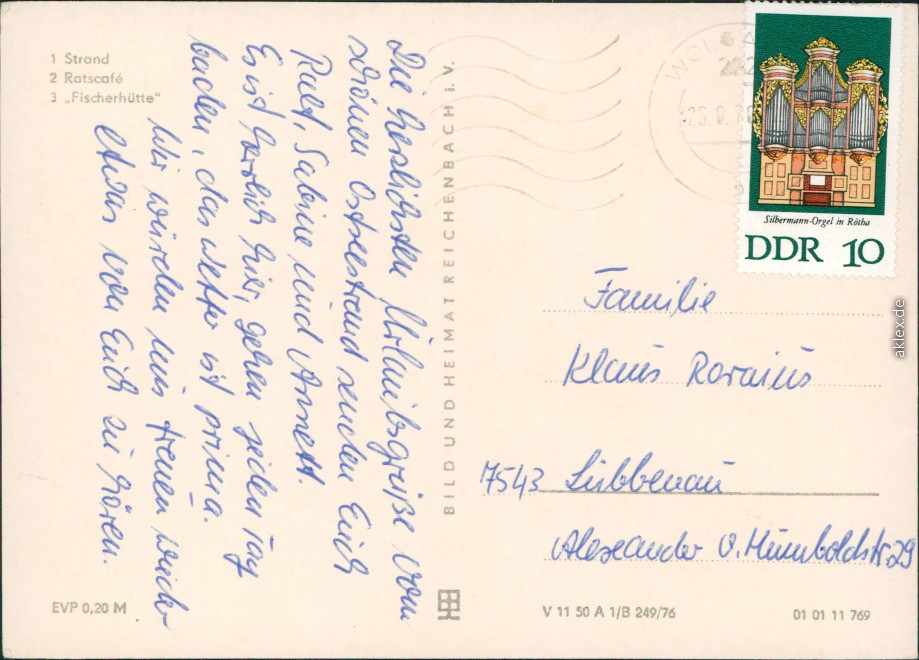 1 Strand
2 Ratscafé
3 „Fischerhütte"
Die herzlichsten Urlaubsgrüße vom
schönen Ostseestrand senden Euch
Ralf, Sabine und Annett.
Es ist herrlich hier, gehen jeden Tag
baden, das Wetter ist prima.
Wir würden uns freuen wieder
etwas von Euch zu hören.
BILD UND HEIMAT REICHENBACH i. V.
WOLGA
25.8.76
Silbermann-Orgel in Rötha
DDR 10
Familie
Klaus
7543 Lübbenau
Alexander v. Humboldtstr. 29
EVP 0,20 M
V 11 50 A 1/B 249/76
01 01 11 769
aklex.de